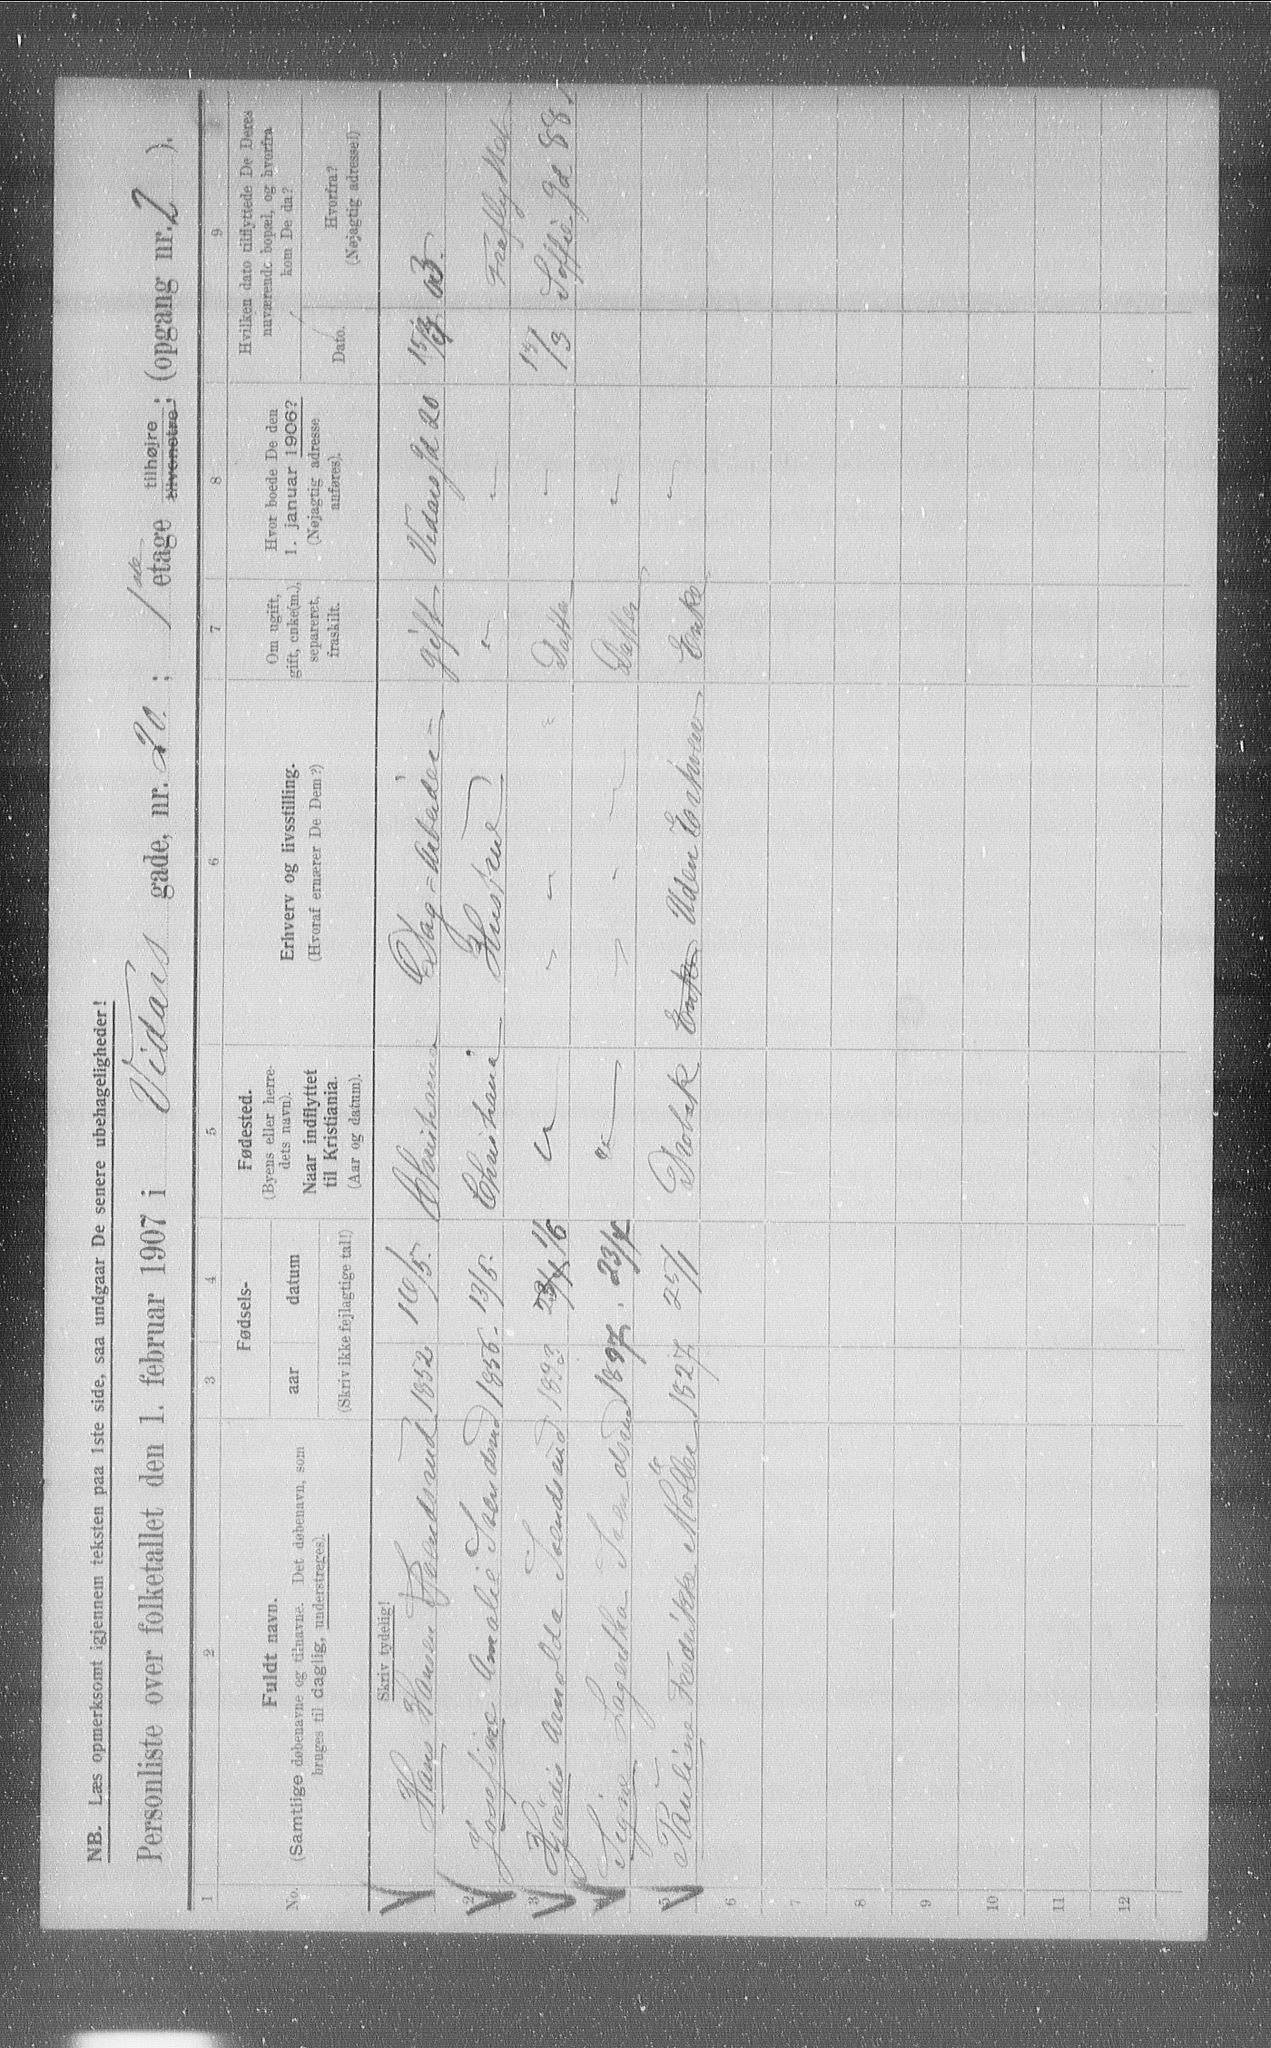 NB. Læs opmerksomt igjennem teksten paa 1ste side, saa undgaar De senere ubehageligheder!
Personliste over folketallet den 1. februar 1907 i Vidars gade, nr. 20. ; 1ste etage tilhøjre tilvenstre ; (opgang nr. 2 ).
1 2 3 4 5 6 7 8 9
No.
Fuldt navn.
(Samtlige døbenavne og tilnavne. Det døbenavn, som
bruges til daglig, understreges).
Fødsels-
aar datum
(Skriv ikke fejlagtige tal!)
Fødested.
(Byens eller herre-
dets navn).
Naar indflyttet
til Kristiania.
(Aar og datum).
Erhverv og livsstilling.
(Hvoraf ernærer De Dem?)
Om ugift,
gift, enke(m.),
separeret,
fraskilt.
Hvor boede De den
1. januar 1906?
(Nøjagtig adresse
anføres).
Hvilken dato tilflyttede De Deres
nuværende bopæl, og hvorfra
kom De da?
Dato.
Hvorfra?
(Nøjagtig adresse!)
Skriv tydelig!
Hans Hansen 1852 16/5. Christiania Dag-Arbeider - gift Vidarsgd 20 03.
2 Josefine Amalie Svendsrud 1856. 13/5. Christiania Hustru " " Fraflyttet
3 Hjørdis Arnolda Svendsrud 1893 23/4 1/6 " " " " Datter " 13/3 Soffiegd 88.
Signe Lagertha Svendsrud 1897. 23/4 " " " " Datter "
5 Pauline Fredrikke Møller 1827 25/1 Drøbak Enke Uden Erhverv Enke "
6
7
8
9
10
11
12